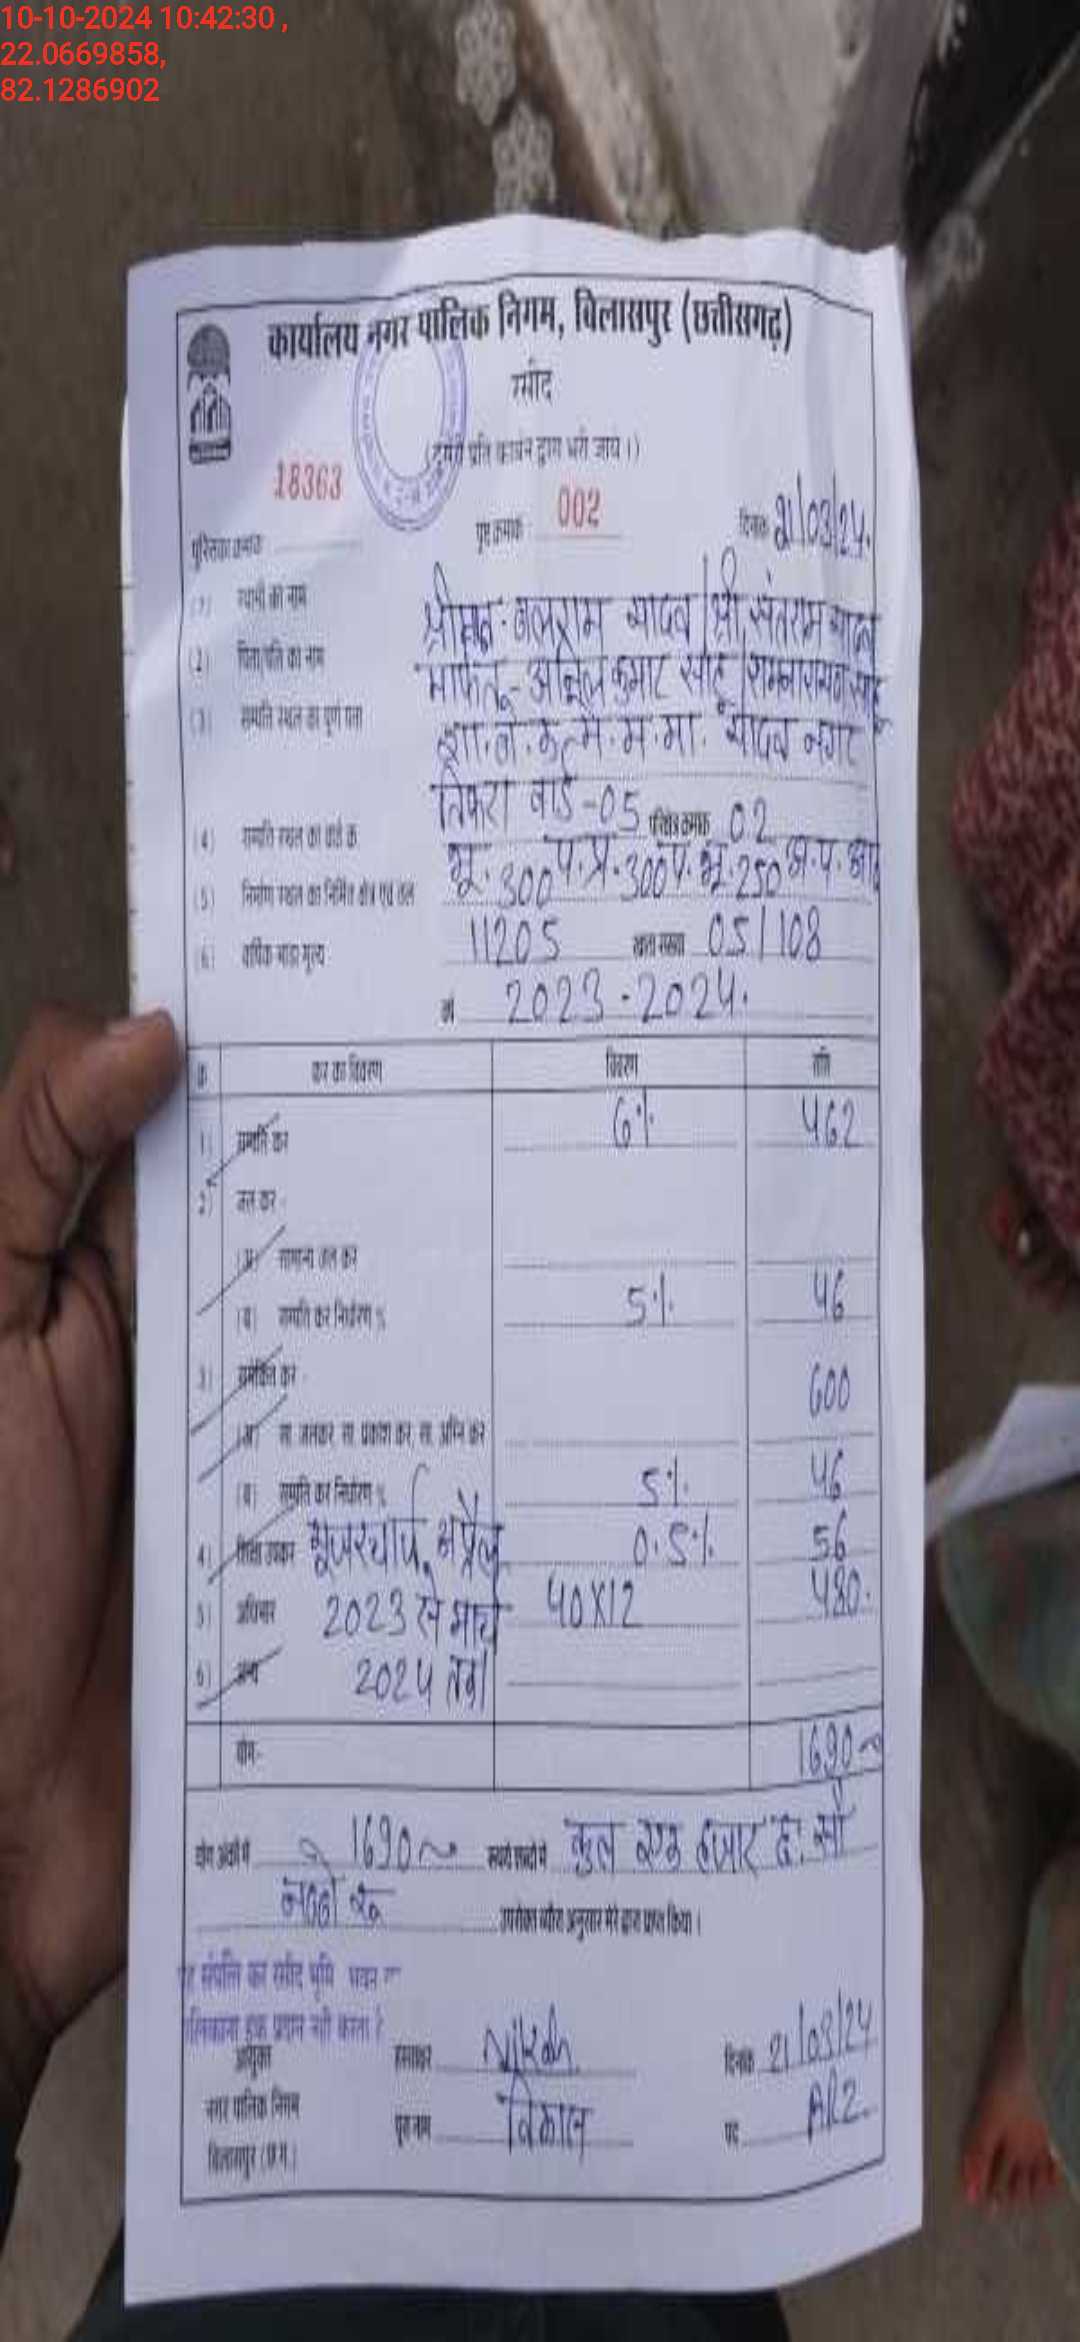 10-10-2024 10:42:30 ,
22.0669858,
82.1286902
कार्यालय नगर पालिक निगम, बिलासपुर (छत्तीसगढ़)
रसीद
प्रति कार्बन द्वारा भरी जाये।)
18363 002
पुस्तिका क्रमांक पृष्ठ क्रमांक दिनांक 21/03/24.
(1) स्वामी का नाम बलराम यादव / श्री संतराम यादव
(2) पिता/पति का नाम अनिल कुमार साहू
(3) सम्पत्ति स्थल का पूर्ण पता यादव नगर
तिफरा वार्ड-05 परिक्षेत्र क्रमांक 02
(4) सम्पत्ति स्थल का वार्ड क्र.
(5) निर्माण स्थल का निर्मित क्षेत्र एवं तल भू. 300 प.प्र. 300 प.भू. 250
(6) वार्षिक भाड़ा मूल्य 11205 खाता संख्या 05/108
वर्ष 2023-2024.
क्र कर का विवरण विवरण राशि
1) सम्पत्ति कर 6% 462
2) जल कर -
(अ) सामान्य जल कर
(ब) सम्पत्ति कर निर्धारण % 5% 46
3) समेकित कर - 600
(अ) सा. जलकर, सा. प्रकाश कर, सा. अग्नि कर
(ब) सम्पत्ति कर निर्धारण % 5% 46
4) शिक्षा उपकर यूजरचार्ज, अप्रैल 0.5% 56
5) अधिभार 2023 से मार्च 40X12 480.
6) अन्य 2024 तक।
योग- 1690
योग अंकों में 1690 रूपये शब्दों में कुल एक हजार छः सौ
नब्बे रू उपरोक्त ब्यौरा अनुसार मेरे द्वारा प्राप्त किया।
संपत्ति कर रसीद भूमि भवन
मालिकाना हक प्रदान नहीं करता है
आयुक्त हस्ताक्षर दिनांक 21/03/24
नगर पालिक निगम पूरा नाम विकास पद ARI
बिलासपुर (छ.ग.)